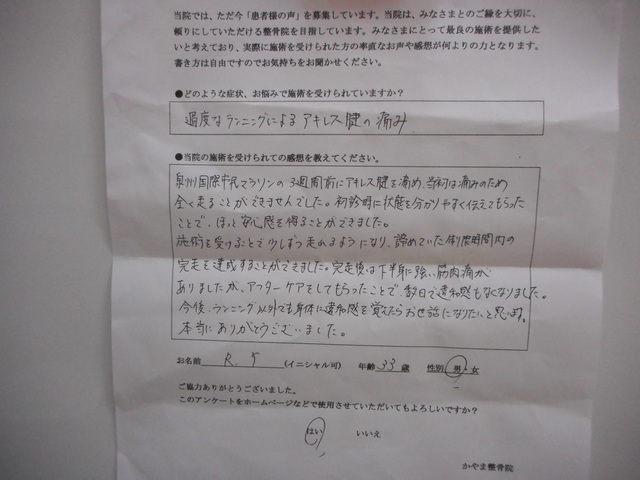 当院では、ただ今「患者様の声」を募集しています。当院は、みなさまとのご縁を大切に、
頼りにしていただける整骨院を目指しています。みなさまにとって最良の施術を提供した
いと考えており、実際に施術を受けられた方の率直なお声や感想が何よりの力となります。
書き方は自由ですのでお気持ちをお聞かせください。
●どのような症状、お悩みで施術を受けられていますか?
過度なランニングによるアキレス腱の痛み
●当院の施術を受けられての感想を教えてください。
泉州国際市民マラソンの3週間前にアキレス腱を痛め、当初は痛みのため
全く走ることができませんでした。初診時に状態を分かりやすく伝えてもらった
ことで、ほっと安心感を得ることができました。
施術を受けることで少しずつ走れるようになり、諦めていた制限時間内の
完走を達成することができました。完走後は下半身に強い筋肉痛が
ありましたが、アフターケアをしてもらったことで、数日で違和感もなくなりました。
今後、ランニング以外でも身体に違和感を覚えたらお世話になりたいと思います。
本当にありがとうございました。
お名前 R. Y (イニシャル可) 年齢 33 歳 性別 男・女
ご協力ありがとうございました。
このアンケートをホームページなどで使用させていただいてもよろしいですか?
はい いいえ
かやま整骨院